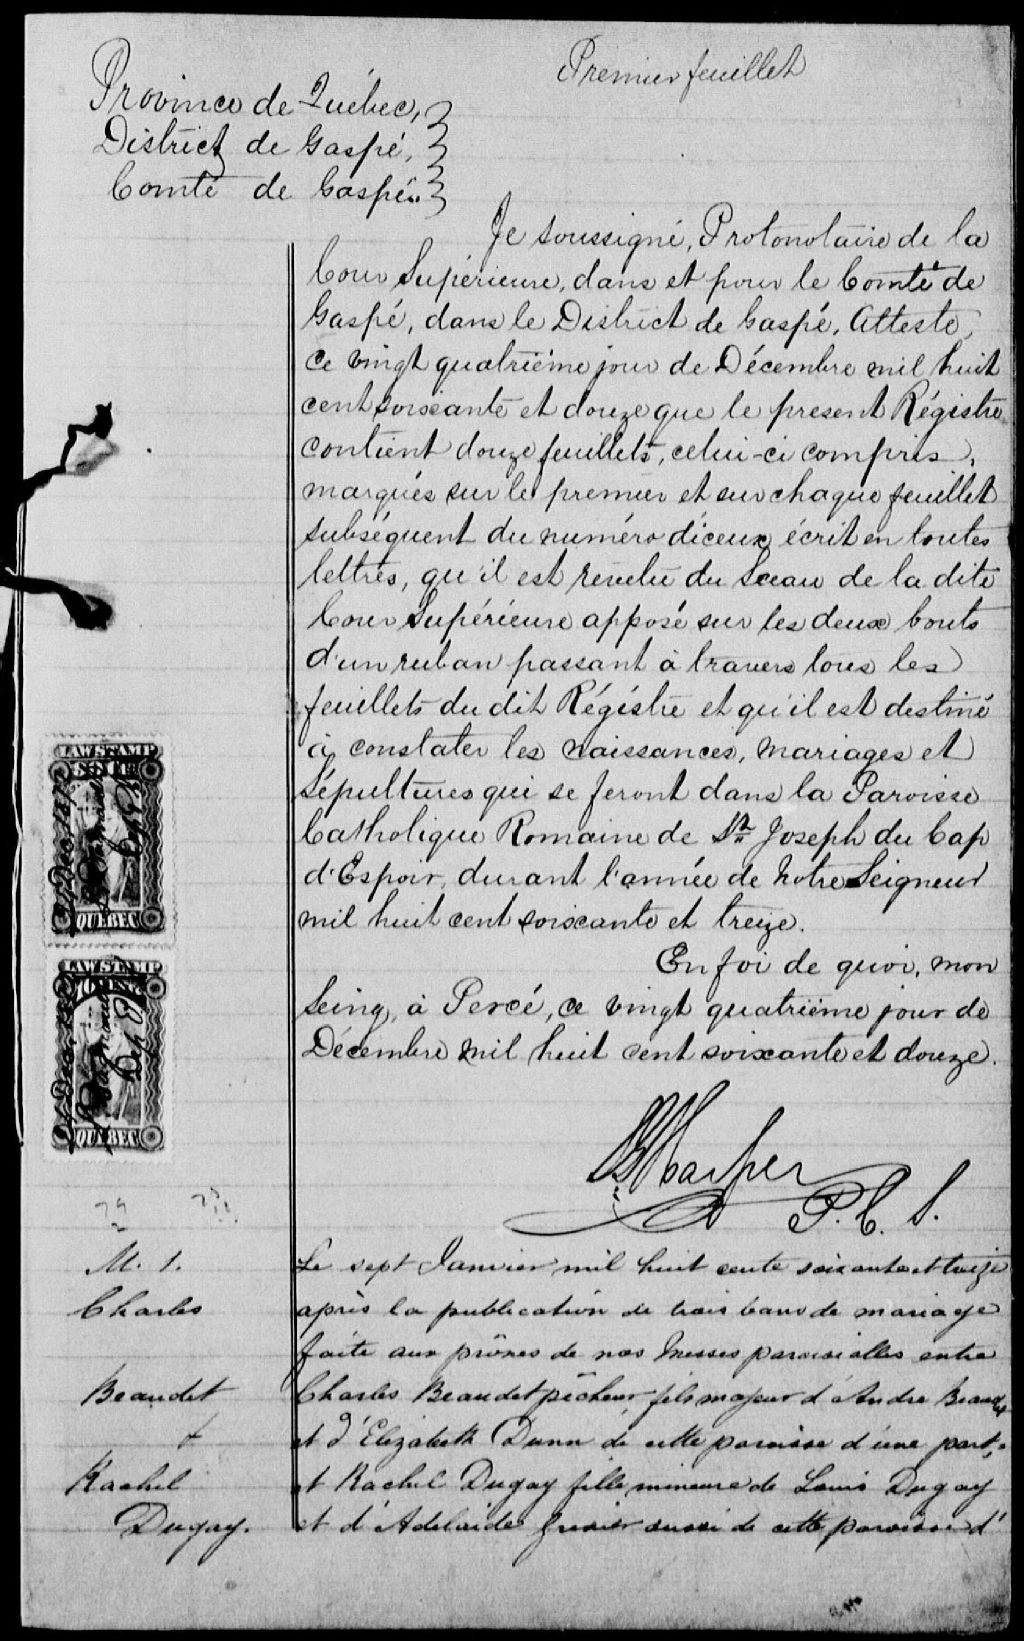 Premier feuillet
Province de Québec,
District de Gaspé,
Comté de Gaspé.
Je soussigné, Protonotaire de la
Cour Supérieure, dans et pour le Comté de
Gaspé, dans le District de Gaspé, Atteste,
ce vingt quatrième jour de Décembre mil huit
cent soixante et douze que le présent Régistre
contient douze feuillets, celui-ci compris,
marqués sur le premier et sur chaque feuillet
subséquent du numéro d'iceux écrit en toutes
lettres, qu'il est revêtu du Sceau de la dite
Cour Supérieure apposé sur les deux bouts
d'un ruban passant à travers tous les
feuillets du dit Régistre et qu'il est destiné
à constater les naissances, mariages et
sépultures qui se feront dans la Paroisse
Catholique Romaine de St. Joseph du Cap
d'Espoir, durant l'année de Notre Seigneur
mil huit cent soixante et treize.
En foi de quoi, mon
Seing, à Percé, ce vingt quatrième jour de
Décembre mil huit cent soixante et douze.
LAW STAMP
QUÉBEC
LAW STAMP
QUÉBEC
Harper
P. C. S.
M. 1.
Charles
Beaudet
+
Rachel
Dugay.
Le sept Janvier mil huit cents soixante et treize
après la publication de trois bans de mariage
faite aux prônes de nos Messes paroissialles entre
Charles Beaudet pêcheur, fils majeur d'André Beaudet
et d'Elizabeth Dunn de cette paroisse d'une part,
et Rachel Dugay fille mineure de Louis Dugay
et d'Adelaide aussi de cette paroisse d'